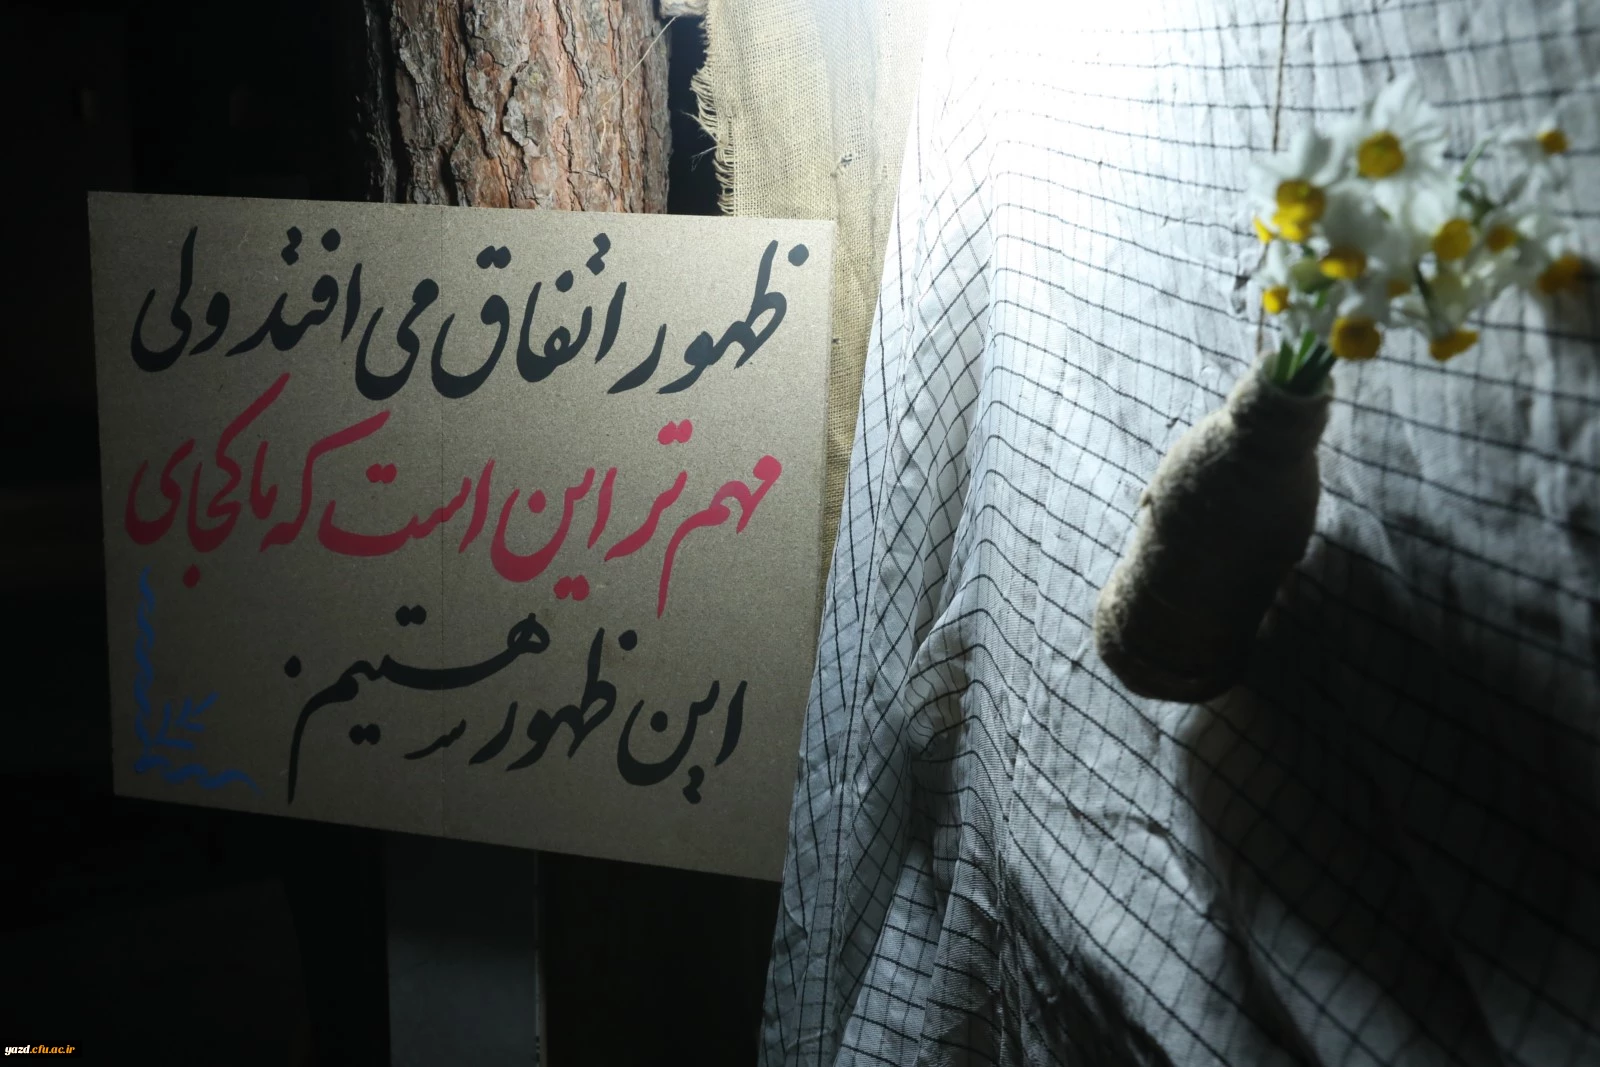 ظهور اتفاق می افتد ولی
مهم تر این است که ما کجای
این ظهور هستیم.
yazd.cfu.ac.ir